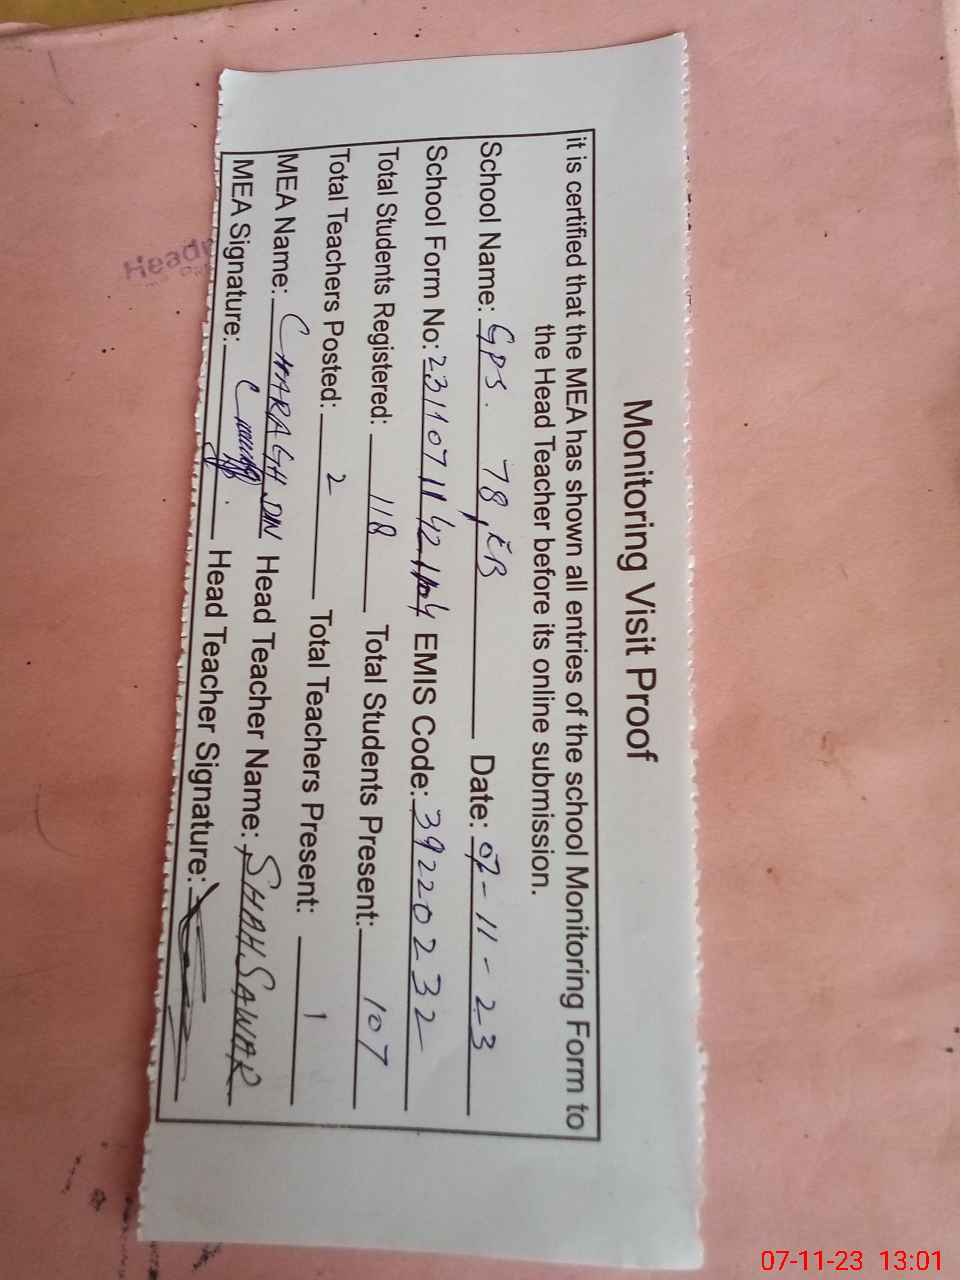 Monitoring Visit Proof
it is certified that the MEA has shown all entries of the school Monitoring Form to
the Head Teacher before its online submission.
School Name: GPS. 78, KB Date: 07-11-23
School Form No: EMIS Code: 39220232
Total Students Registered: 118 Total Students Present: 107
Total Teachers Posted: 2 Total Teachers Present: 1
MEA Name: CHARAGH DIN Head Teacher Name: SHAH SAWAR
MEA Signature: Head Teacher Signature:
07-11-23 13:01